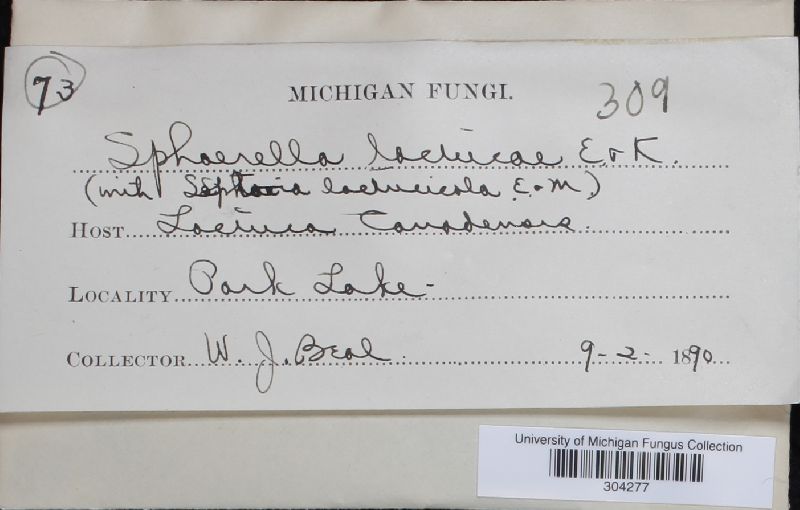 73
MICHIGAN FUNGI.
309
Sphaerella lactucae E & K.
(with Septoria lactucicola E. & M.)
HOST Lactuca Canadensis.
LOCALITY Park Lake-
COLLECTOR W. J. Beal 9-2- 1890
University of Michigan Fungus Collection
304277